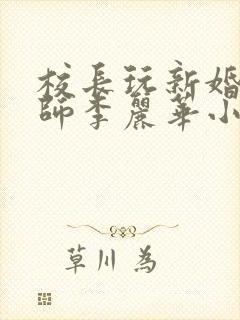 校長玩新婚
師李麗華小
草川 為